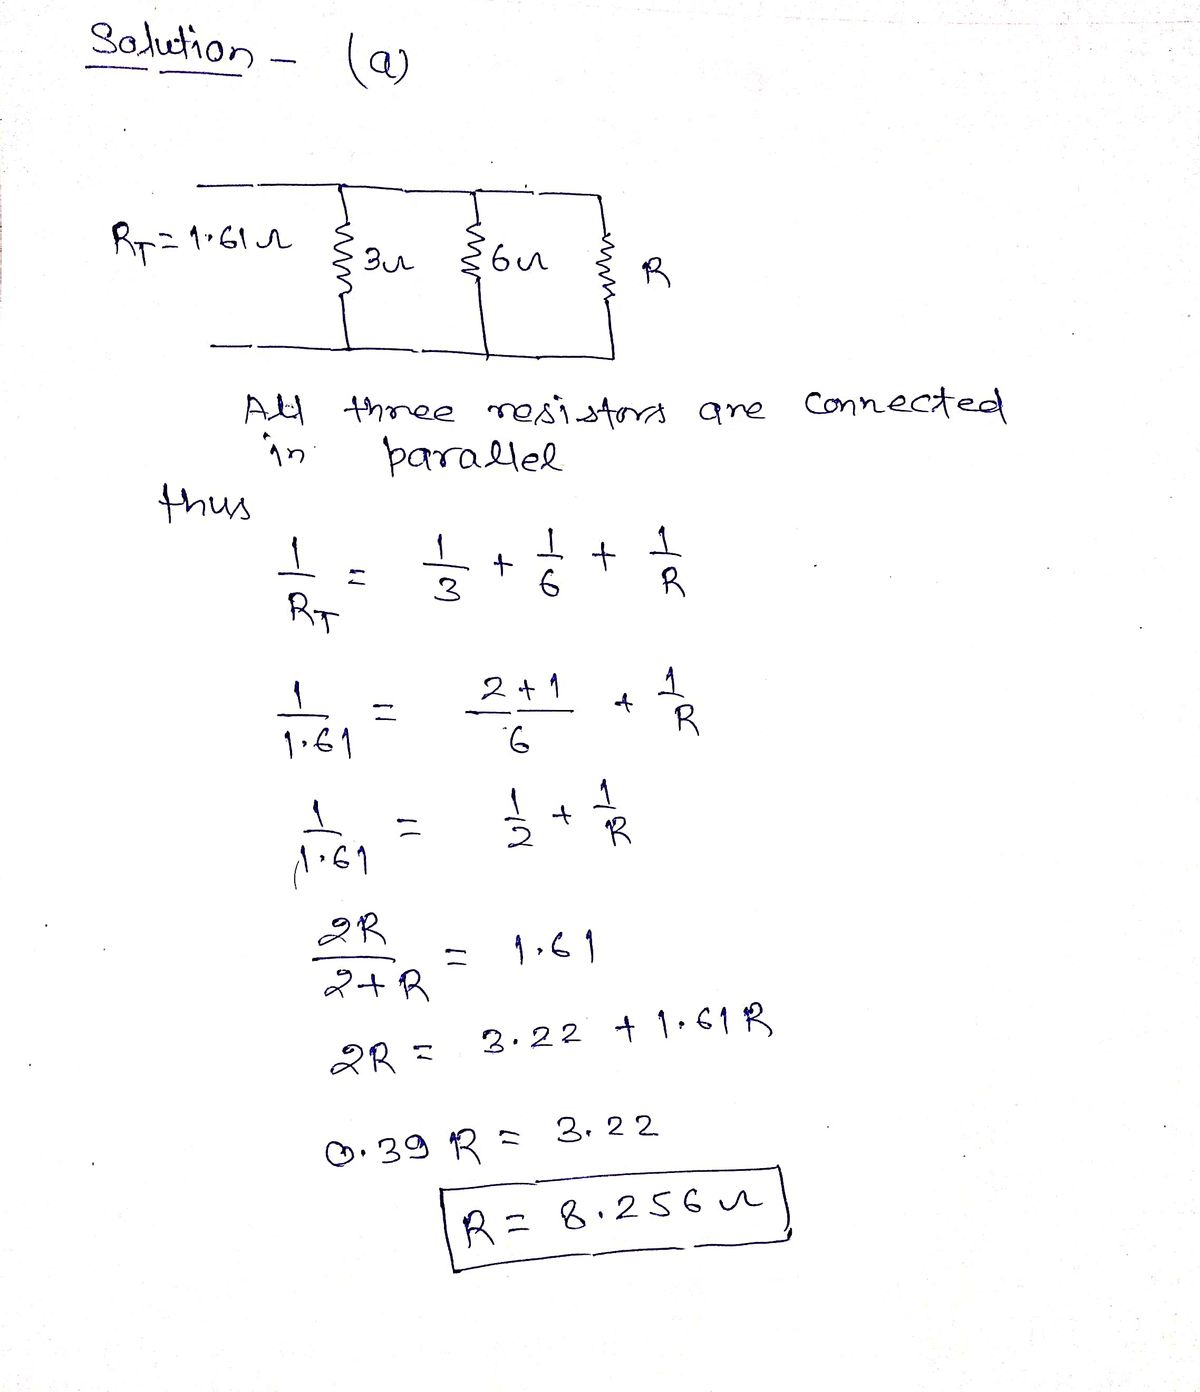 Solution - (a)
R_T = 1.61 Ω 3Ω 6Ω R
All three resistors are connected
in parallel
thus
1/R_T = 1/3 + 1/6 + 1/R
1/1.61 = (2+1)/6 + 1/R
1/1.61 = 1/2 + 1/R
2R/(2+R) = 1.61
2R = 3.22 + 1.61R
0.39 R = 3.22
R = 8.256 Ω